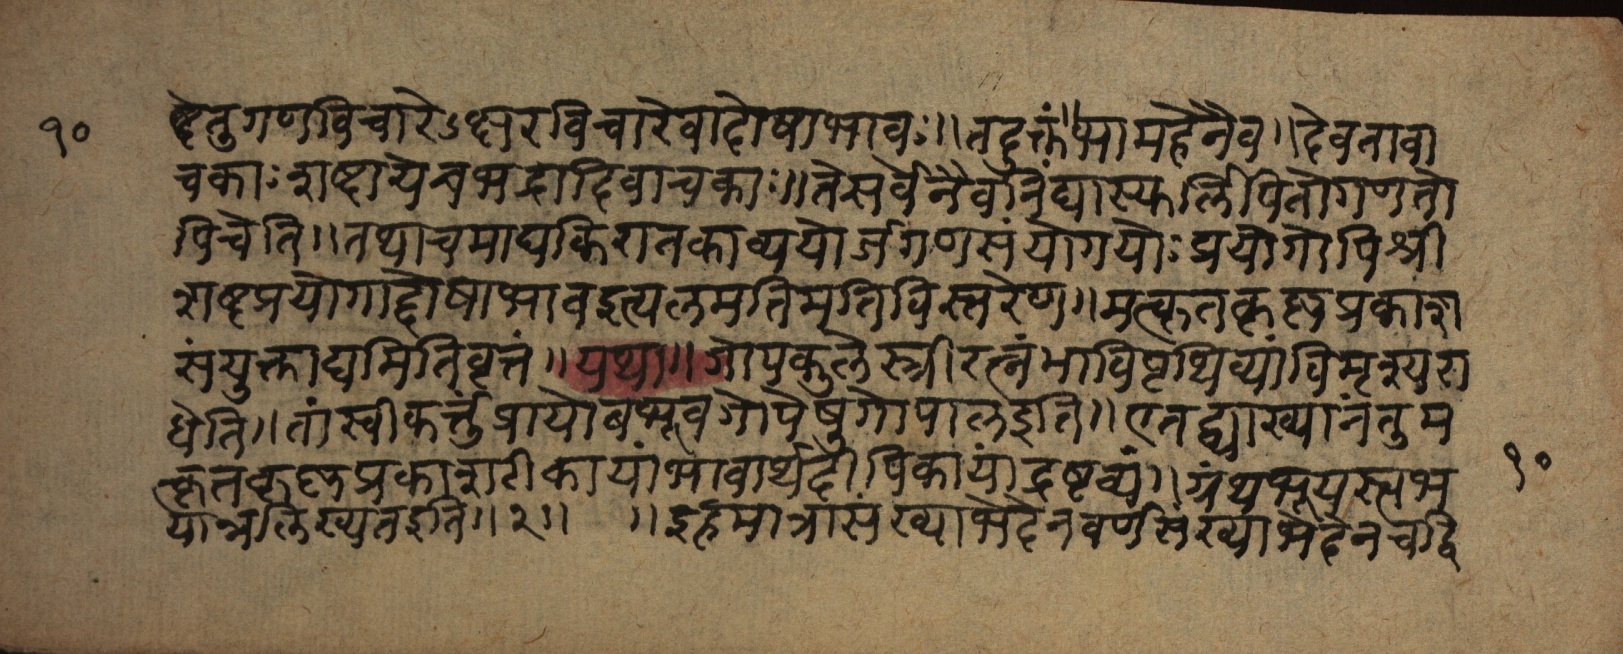 १०
ष्टे तु गणविचारेऽक्षरविचारे वा दोषाभावः ॥ तदुक्तं भामहेनैव ॥ देवतावा
चकाः शब्दा ये च भद्रादिवाचकाः ॥ ते सर्वे नैव निंद्यास्युर्लिपितो गणतो
पि चेति ॥ तथा च माघकिरातकाव्ययोर्जगणसंयोगयोः प्रयोगोपि श्री
शब्दप्रयोगाद्दोषाभाव इत्यलमति विस्तरेण ॥ मत्कृतकृष्णप्रकाश
संयुक्ताद्यमिति वृत्तं ॥ यथा ॥ गोपकुले स्त्रीरत्नं भावि पृथिव्यां विमृश्य रा
धेति ॥ तां स्वीकर्त्तुं प्रायो बभूव गोपेषु गोपाल इति ॥ एतद्व्याख्यानं तु म
त्कृतकृष्णप्रकाशटीकायां भावार्थदीपिकायां द्रष्टव्यं ॥ ग्रंथभूयस्त्वभ
यान्न लिख्यत इति ॥ २ ॥ ॥ इह मात्रासंख्याभेदेन वर्णसंख्याभेदेन च द्वि
१०